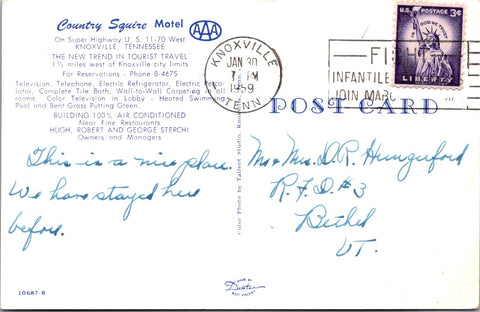 Country Squire Motel
AAA
On Super Highway U. S. 11-70 West
KNOXVILLE, TENNESSEE
THE NEW TREND IN TOURIST TRAVEL
1½ miles west of Knoxville city limits
For Reservations - Phone 8-4675
Television, Telephone, Electric Refrigerator, Electric
lator, Complete Tile Bath, Wall-to-Wall Carpeting in all
rooms. Color Television in Lobby - Heated Swimming
Pool and Bent Grass Putting Green.
BUILDING 100% AIR CONDITIONED
Near Fine Restaurants
HUGH, ROBERT AND GEORGE STERCHI
Owners and Managers
This is a nice place.
We have stayed here
before.
10687-B
Color Photo by Tallent Studio,
MADE BY
Dexter
WEST NYACK
KNOXVILLE
JAN 30
7 PM
1959
TENN
INFANTILE
JOIN MARC
U.S. POSTAGE 3¢
IN GOD WE TRUST
LIBERTY
POST CARD
Mr & Mrs. D.R. Hungerford
R.F.D. #3
Bethel
VT.